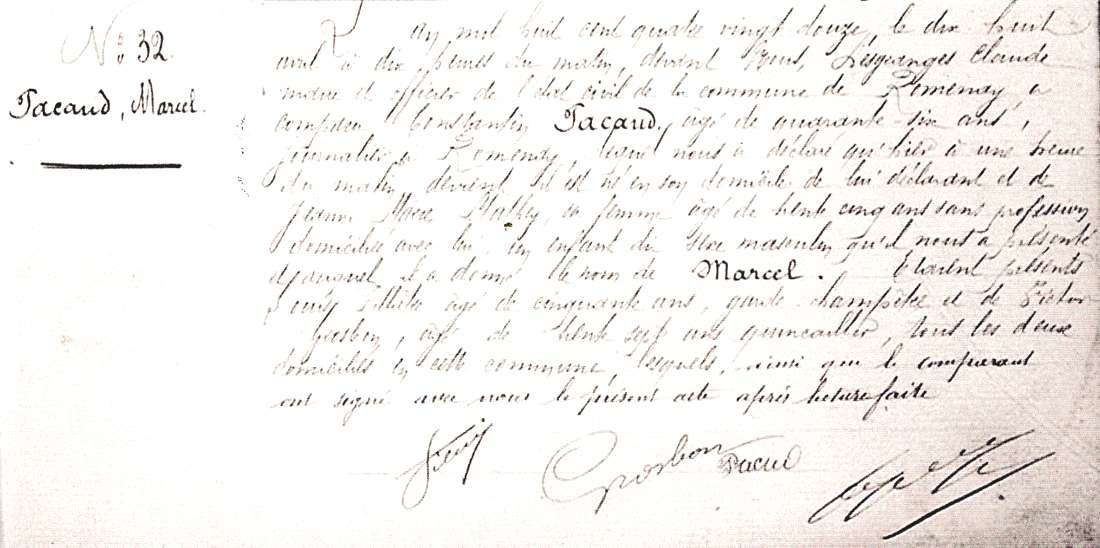 N° 32.
Tacaud, Marcel.
L'an mil huit cent quatre vingt douze, le dix huit
avril à dix heures du matin, devant Nous, Claude
maire et officier de l'état civil de la commune de Romenay a
comparu Constantin Tacaud, âgé de quarante-six ans,
journalier à Romenay, lequel nous a déclaré qu'hier à une heure
du matin, devient il est né en son domicile de lui déclarant et de
Jeanne Marie sa femme âgé de trente cinq ans sans profession
domiciliée avec lui, un enfant du sexe masculin qu'il nous a présenté
et auquel il a donné le nom de Marcel. Etaient présents
âgé de cinquante ans, garde champêtre et de Victor
Grosbon, âgé de trente sept ans quincailler, tous les deux
domiciliés en cette commune, lesquels, ainsi que le comparant
ont signé avec nous le présent acte après lecture faite
Grosbon Tacaud